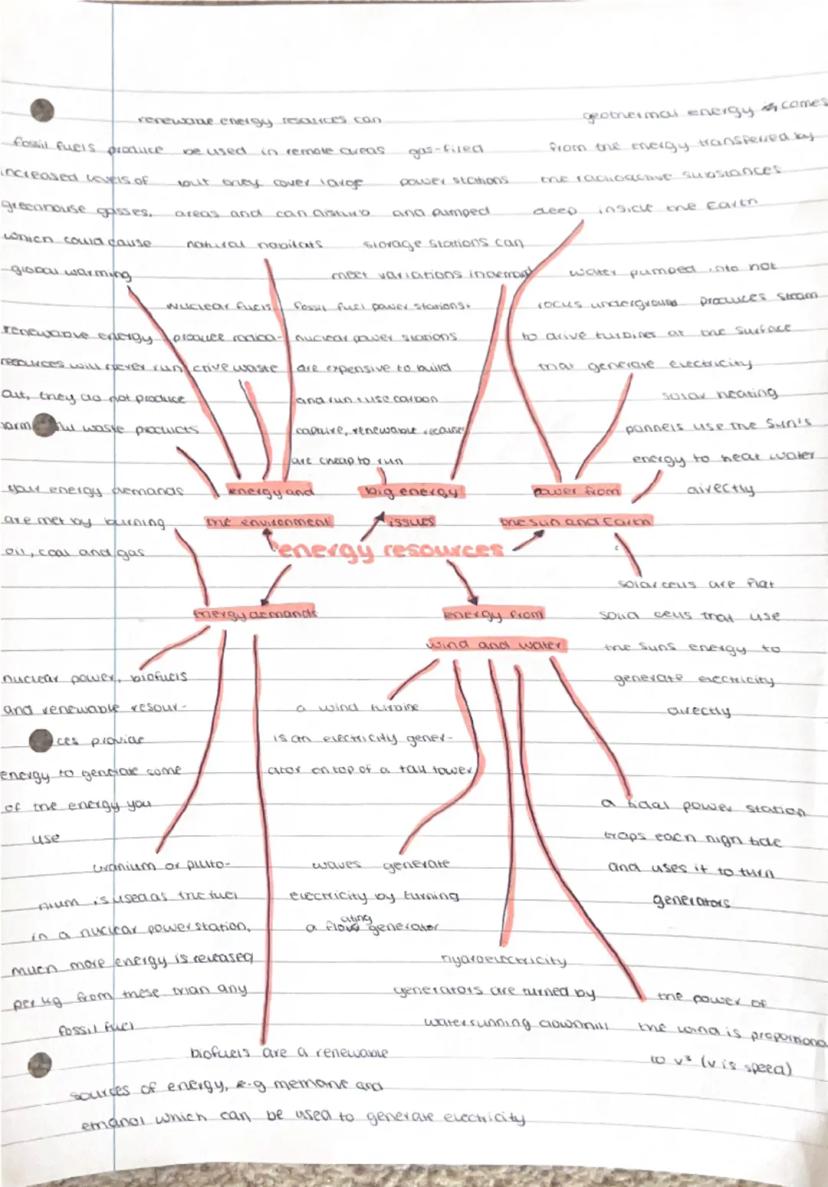 renewable energy resources can
be used in remote areas
but they cover large
areas and can disturb
natural habitats
fossil fuels produce
increased levels of
greenhouse gasses,
which could cause
global warming
nuclear fuels
produce radioa-
ctive waste
renewable energy
resources will never run
out, they do not produce
harmful waste products
energy and
the environment
gas-fired
power stations
and pumped
storage stations can
meet variations in demand
fossil fuel power stations,
nuclear power stations
are expensive to build
and run + use carbon
capture, renewable
are cheap to run
big energy
issues
geothermal energy comes
from the energy transferred by
the radioactive substances
deep inside the Earth
water pumped into hot
rocks underground produces steam
to drive turbines at the surface
that generate electricity
solar heating
pannels use the Sun's
energy to heat water
directly
power from
the sun and Earth
solar cells are flat
solid cells that use
the suns energy to
generate electricity
directly
energy resources
energy demands
your energy demands
are met by burning
oil, coal and gas
nuclear power, biofuels
and renewable resour-
ces provide
energy to generate some
of the energy you
use
uranium or pluto-
nium is used as the fuel
in a nuclear power station,
much more energy is released
per kg from these than any
fossil fuel
biofuels are a renewable
sources of energy, e.g methane and
ethanol which can be used to generate electricity
energy from
wind and water
a wind turbine
is an electricity gener-
ator on top of a tall tower
waves generate
electricity by turning
a floating generator
hydroelectricity
generators are turned by
water running downhill
the power of
the wind is proportional
to v³ (v is speed)
a tidal power station
traps each high tide
and uses it to turn
generators